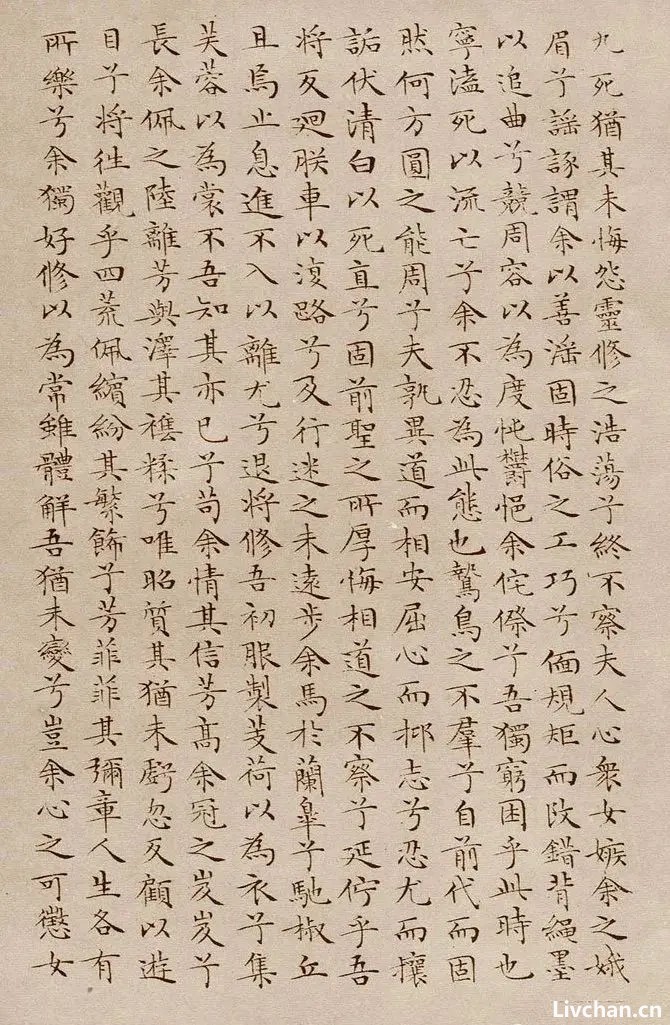 九死猶其未悔怨靈修之浩蕩兮終不察夫人心衆女嫉余之娥
眉兮謡諑謂余以善滛固時俗之工巧兮偭規矩而改錯背繩墨
以追曲兮競周容以為度忳鬱悒余侘傺兮吾獨窮困乎此時也
寧溘死以流亡兮余不忍為此態也鷙鳥之不羣兮自前代而固
然何方圓之能周兮夫孰異道而相安屈心而抑志兮忍尤而攘
詬伏清白以死直兮固前聖之所厚悔相道之不察兮延佇乎吾
將反廻朕車以復路兮及行迷之未遠步余馬於蘭皋兮馳椒丘
且焉止息進不入以離尤兮退將修吾初服製芰荷以為衣兮集
芙蓉以為裳不吾知其亦已兮苟余情其信芳高余冠之岌岌兮
長余佩之陸離芳與澤其襍糅兮唯昭質其猶未虧忽反顧以遊
目兮將往觀乎四荒佩繽紛其繁飾兮芳菲菲其彌章人生各有
所樂兮余獨好修以為常雖體解吾猶未變兮豈余心之可懲女
Livchan.cn